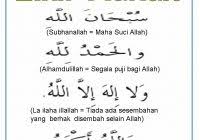 سُبْحَانَ اللَّهِ
(Subhanallah = Maha Suci Allah)
وَالْحَمْدُ لِلَّهِ
(Alhamdulillah = Segala puji bagi Allah)
وَلَا إِلَهَ إِلَّا اللَّهُ
(La ilaha illallah = Tiada ada sesembahan
yang berhak disembah selain Allah)